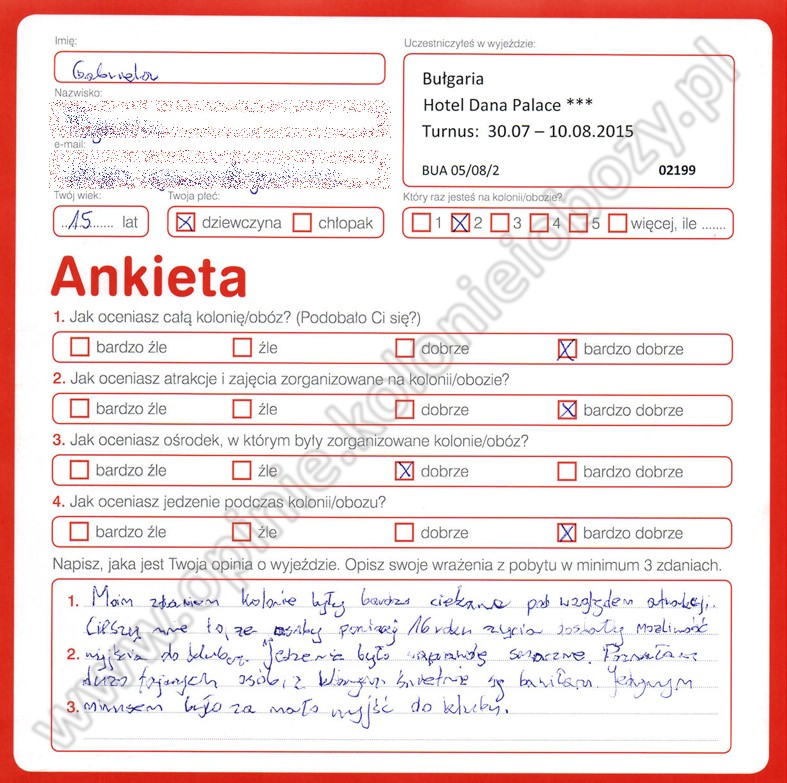 Imię:
Gabriela
Uczestniczyłeś w wyjeździe:
Bułgaria
Hotel Dana Palace ***
Turnus: 30.07 – 10.08.2015
BUA 05/08/2 02199
Nazwisko:
e-mail:
Twój wiek:
15 lat
Twoja płeć:
dziewczyna chłopak
Który raz jesteś na kolonii/obozie?
1 2 3 4 5 więcej, ile .......
Ankieta
1. Jak oceniasz całą kolonię/obóz? (Podobało Ci się?)
bardzo źle źle dobrze bardzo dobrze
2. Jak oceniasz atrakcje i zajęcia zorganizowane na kolonii/obozie?
bardzo źle źle dobrze bardzo dobrze
3. Jak oceniasz ośrodek, w którym były zorganizowane kolonie/obóz?
bardzo źle źle dobrze bardzo dobrze
4. Jak oceniasz jedzenie podczas kolonii/obozu?
bardzo źle źle dobrze bardzo dobrze
Napisz, jaka jest Twoja opinia o wyjeździe. Opisz swoje wrażenia z pobytu w minimum 3 zdaniach.
1. Moim zdaniem kolonie były bardzo ciekawe pod względem atrakcji.
Cieszy mnie to, że osoby poniżej 16 roku życia dostały możliwość
2. wyjścia do klubu. Jedzenie było naprawdę smaczne. Poznałam
dużo fajnych osób, z którymi świetnie się bawiłam. Jedynym
3. minusem było za mało wyjść do klubu.
www.opinie.kolonieiobozy.pl